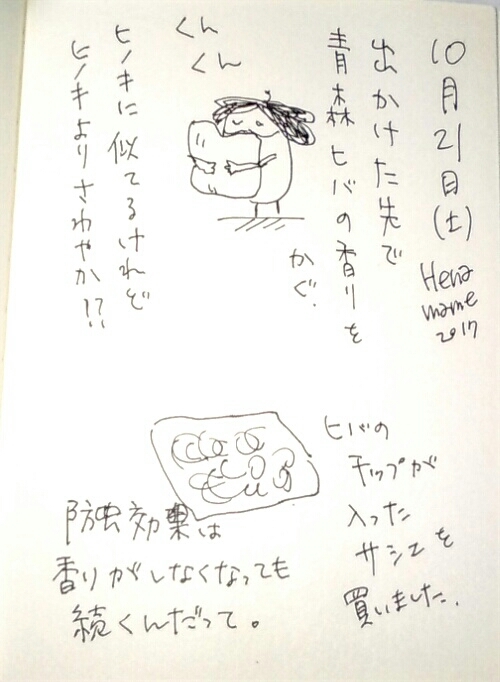 10月21日(土)
Hena
mame
2017
出かけた先で
青森ヒバの香りを
かぐ.
くん
くん
ヒノキに似てるけれど
ヒノキよりさわやか!?
ヒバの
チップが
入った
サシェを
買いました.
防虫効果は
香りがしなくなっても
続くんだって。